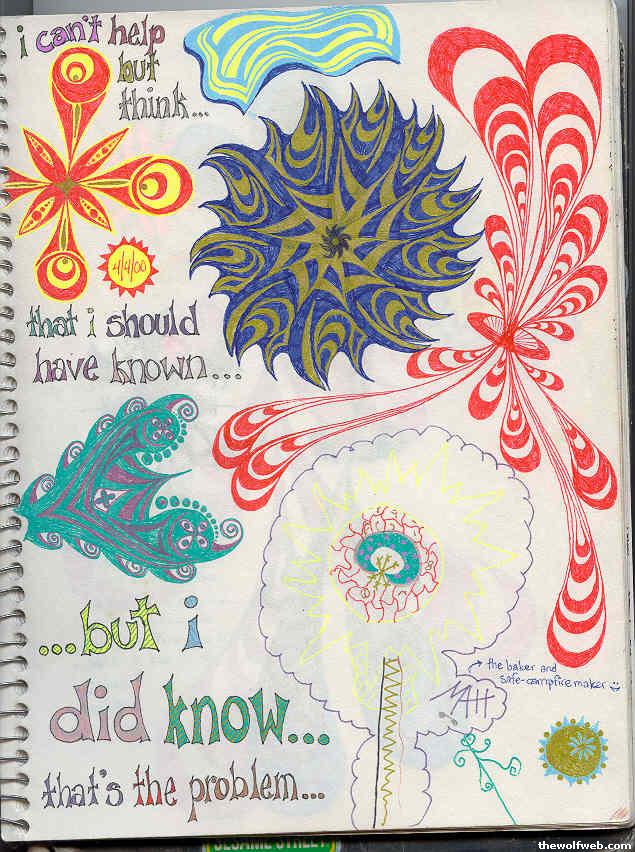 i can't help
but
think...
4/4/00
that i should
have known...
...but i
did know...
that's the problem...
the baker and
safe-campfire maker
SESAME STREET
thewolfweb.com